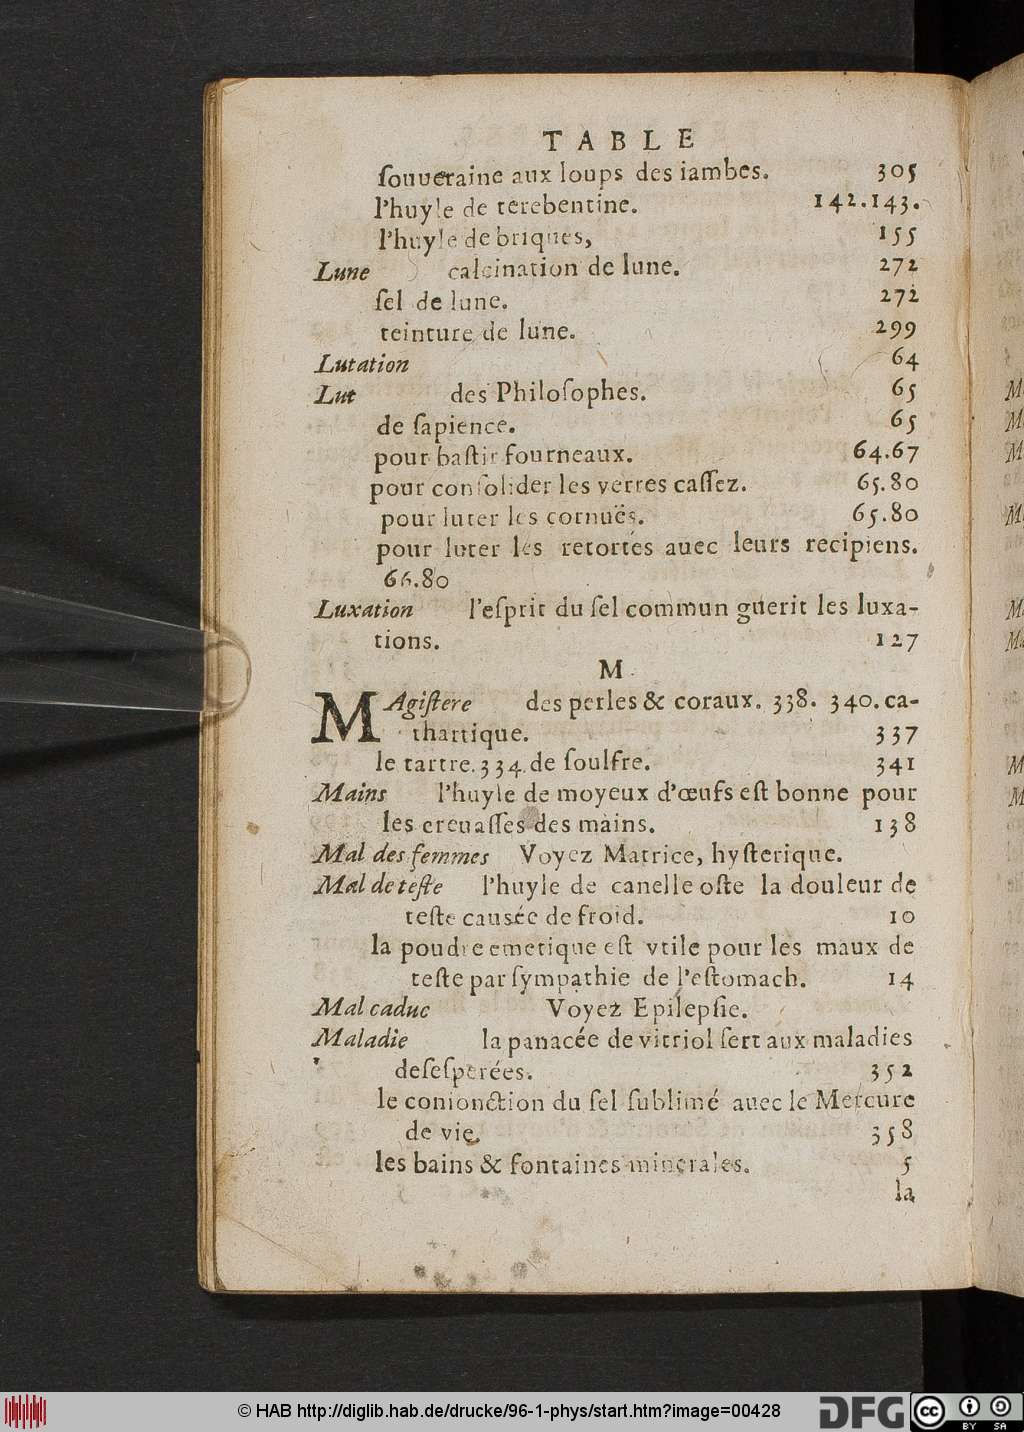 TABLE
ſouueraine aux loups des iambes. 305
l'huyle de terebentine. 142.143.
l'huyle de briques, 155
Lune calcination de lune. 272
ſel de lune. 272
teinture de lune. 299
Lutation 64
Lut des Philoſophes. 65
de ſapience. 65
pour baſtir fourneaux. 64.67
pour conſolider les verres caſſez. 65.80
pour luter les cornuës. 65.80
pour luter les retortes auec leurs recipiens.
66.80
Luxation l'eſprit du ſel commun guerit les luxa-
tions. 127
M
MAgiſtere des perles & coraux. 338. 340. ca-
thartique. 337
le tartre. 334. de ſoulfre. 341
Mains l'huyle de moyeux d'œufs eſt bonne pour
les creuaſſes des mains. 138
Mal des femmes Voyez Matrice, hyſterique.
Mal de teſte l'huyle de canelle oſte la douleur de
teſte causée de froid. 10
la poudre emetique eſt vtile pour les maux de
teſte par ſympathie de l'eſtomach. 14
Mal caduc Voyez Epilepſie.
Maladie la panacée de vitriol ſert aux maladies
deſeſperées. 352
le conionction du ſel ſublimé auec le Mercure
de vie. 358
les bains & fontaines minerales. 5
la
© HAB http://diglib.hab.de/drucke/96-1-phys/start.htm?image=00428
DFG
cc
BY SA